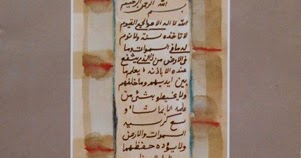 الله الرحمن الرحيم
بسم
الله لا اله الا هو الحي القيوم
لا تاخذه سنة ولا نوم
له ما في السموات وما
في الارض من ذا الذي يشفع
عنده الا باذنه يعلم ما
بين ايديهم وما خلفهم
ولا يحيطون بشئ من
علمه الا بما شاء و
سع كرسيه
السموات والارض
ولا يؤده حفظهما